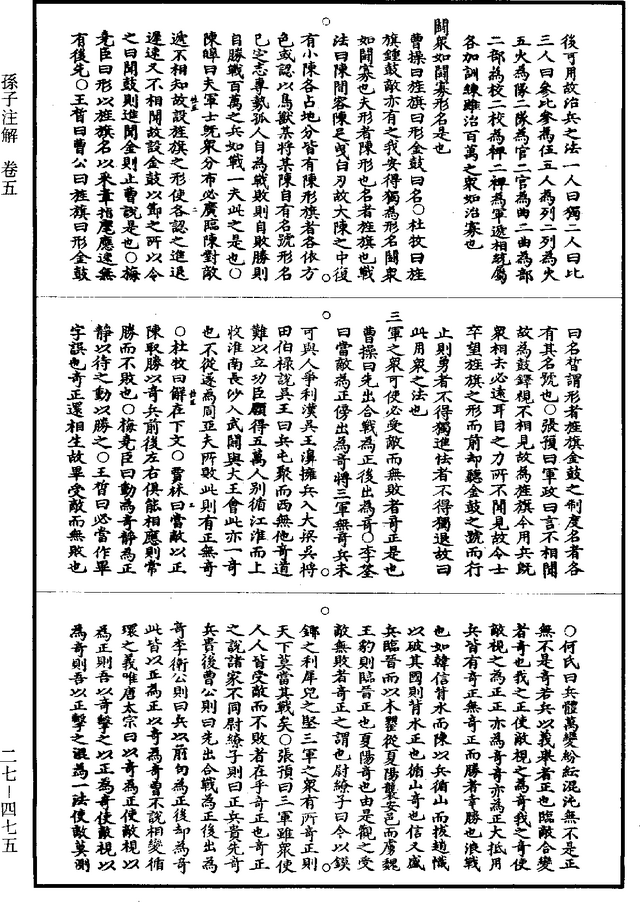 後可用故治兵之法一人曰獨二人曰比
三人曰參比參為伍五人為列二列為火
五火為隊二隊為官二官為曲二曲為部
二部為校二校為裨二裨為軍遞相統屬
各加訓練雖治百萬之衆如治寡也
鬬衆如鬬寡形名是也
曹操曰旌旗曰形金鼓曰名○杜牧曰旌
旗鍾鼓敵亦有之我安得獨為形名鬬衆
如鬬寡也夫形者陳形也名者旌旗也戰
法曰陳間容陳足曳白刃故大陳之中復
有小陳各占地分皆有陳形旗者各依方
色或認以鳥獸某將某陳自有名號形名
已定志專勢孤人自為戰敗則自敗勝則
自勝戰百萬之兵如戰一夫此之是也○
陳皞曰夫軍士既衆分布必廣臨陳對敵
遞不相知故設旌旗之形使各認之進退
遲速又不相聞故設金鼓以節之所以令
之曰聞鼓則進聞金則止曹說是也○梅
堯臣曰形以旌旗名以采章指麾應速無
有後先○王晳曰曹公曰旌旗曰形金鼓
曰名晳謂形者旌旗金鼓之制度名者各
有其名號也○張預曰軍政曰言不相聞
故為鼓鐸視不相見故為旌旗今用兵既
衆相去必遠耳目之力所不聞見故令士
卒望旌旗之形而前却聽金鼓之號而行
止則勇者不得獨進怯者不得獨退故曰
此用衆之法也
三軍之衆可使必受敵而無敗者奇正是也
曹操曰先出合戰為正後出為奇○李筌
曰當敵為正傍出為奇將三軍無奇兵未
可與人爭利漢吳王濞擁兵入大梁吳將
田伯祿說吳王曰兵屯聚而西無他奇道
難以立功臣願得五萬人別循江淮而上
收淮南長沙入武關與大王會此亦一奇
也不從遂為周亞夫所敗此則有正無奇
○杜牧曰解在下文○賈林曰當敵以正
陳取勝以奇兵前後左右俱能相應則常
勝而不敗也○梅堯臣曰動為奇靜為正
靜以待之動以勝之○王晳曰必當作畢
字誤也奇正還相生故畢受敵而無敗也
○何氏曰兵體萬變紛紜混沌無不是正
無不是奇若兵以義舉者正也臨敵合變
者奇也我之正使敵視之為奇我之奇使
敵視之為正正亦為奇奇亦為正大抵用
兵皆有奇正無奇正而勝者幸勝也浪戰
也如韓信背水而陳以兵循山而拔趙幟
以破其國則背水正也循山奇也信又盛
兵臨晉而以木罌從夏陽襲安邑而虜魏
王豹則臨晉正也夏陽奇也由是觀之受
敵無敗者奇正之謂也尉繚子曰今以鏌
鋣之利犀兕之堅三軍之衆有所奇正則
天下莫當其戰矣○張預曰三軍雖衆使
人人皆受敵而不敗者在乎奇正也奇正
之說諸家不同尉繚子則曰正兵貴先奇
兵貴後曹公則曰先出合戰為正後出為
奇李衛公則曰兵以前向為正後却為奇
此皆以正為正以奇為奇曾不說相變循
環之義唯唐太宗曰以奇為正使敵視以
為正則吾以奇擊之以正為奇使敵視以
為奇則吾以正擊之混為一法使敵莫測
孫子注解 卷五
二七—四七五